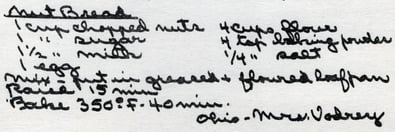 Nut Bread
1 cup chopped nuts 4 cups flour
1 " sugar 4 tsp baking powder
1 1/2 " milk 1/4 " salt
1 egg
Mix + put in greased + floured loafpan
Raise 15 min
Bake 350° F - 40 min.
Ohio - Mrs. Vodrey